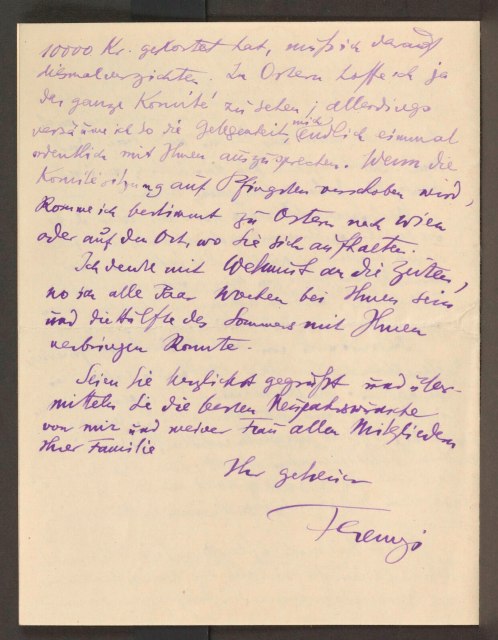 10000 Kr. gekostet hat, muß ich darauf
diesmal verzichten. Zu Ostern hoffe ich ja
das ganze Komité zu sehen; allerdings
versäume ich so die Gelegenheit, mich endlich einmal
ordentlich mit Ihnen auszusprechen. Wenn die
Komitésitzung auf Pfingsten verschoben wird,
komme ich bestimmt zu Ostern nach Wien
oder auf den Ort, wo Sie sich aufhalten.
Ich denke mit Wehmut an die Zeiten,
wo ich alle Paar Wochen bei Ihnen sein
und die Hälfte des Sommers mit Ihnen
verbringen konnte.
Seien Sie herzlichst gegrüßt und über-
mitteln Sie die besten Neujahrswünsche
von mir und meiner Frau allen Mitgliedern
Ihrer Familie
Ihr getreuer
Ferenczi